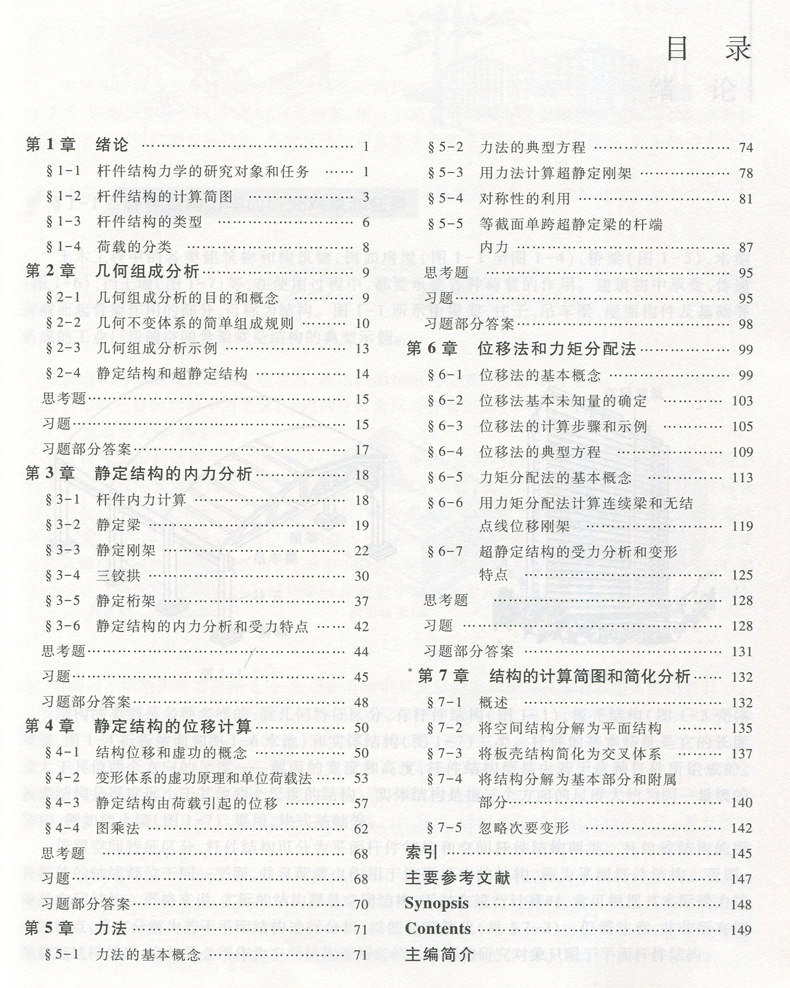 目 录
第1章 绪论 …… 1
§1-1 杆件结构力学的研究对象和任务 …… 1
§1-2 杆件结构的计算简图 …… 3
§1-3 杆件结构的类型 …… 6
§1-4 荷载的分类 …… 8
第2章 几何组成分析 …… 9
§2-1 几何组成分析的目的和概念 …… 9
§2-2 几何不变体系的简单组成规则 …… 10
§2-3 几何组成分析示例 …… 13
§2-4 静定结构和超静定结构 …… 14
思考题 …… 15
习题 …… 15
习题部分答案 …… 17
第3章 静定结构的内力分析 …… 18
§3-1 杆件内力计算 …… 18
§3-2 静定梁 …… 19
§3-3 静定刚架 …… 22
§3-4 三铰拱 …… 30
§3-5 静定桁架 …… 37
§3-6 静定结构的内力分析和受力特点 …… 42
思考题 …… 44
习题 …… 45
习题部分答案 …… 48
第4章 静定结构的位移计算 …… 50
§4-1 结构位移和虚功的概念 …… 50
§4-2 变形体系的虚功原理和单位荷载法 …… 53
§4-3 静定结构由荷载引起的位移 …… 57
§4-4 图乘法 …… 62
思考题 …… 68
习题 …… 68
习题部分答案 …… 70
第5章 力法 …… 71
§5-1 力法的基本概念 …… 71
§5-2 力法的典型方程 …… 74
§5-3 用力法计算超静定刚架 …… 78
§5-4 对称性的利用 …… 81
§5-5 等截面单跨超静定梁的杆端
内力 …… 87
思考题 …… 95
习题 …… 95
习题部分答案 …… 98
第6章 位移法和力矩分配法 …… 99
§6-1 位移法的基本概念 …… 99
§6-2 位移法基本未知量的确定 …… 103
§6-3 位移法的计算步骤和示例 …… 105
§6-4 位移法的典型方程 …… 109
§6-5 力矩分配法的基本概念 …… 113
§6-6 用力矩分配法计算连续梁和无结
点线位移刚架 …… 119
§6-7 超静定结构的受力分析和变形
特点 …… 125
思考题 …… 128
习题 …… 128
习题部分答案 …… 131
*第7章 结构的计算简图和简化分析 …… 132
§7-1 概述 …… 132
§7-2 将空间结构分解为平面结构 …… 135
§7-3 将板壳结构简化为交叉体系 …… 137
§7-4 将结构分解为基本部分和附属
部分 …… 140
§7-5 忽略次要变形 …… 142
索引 …… 145
主要参考文献 …… 147
Synopsis …… 148
Contents …… 149
主编简介